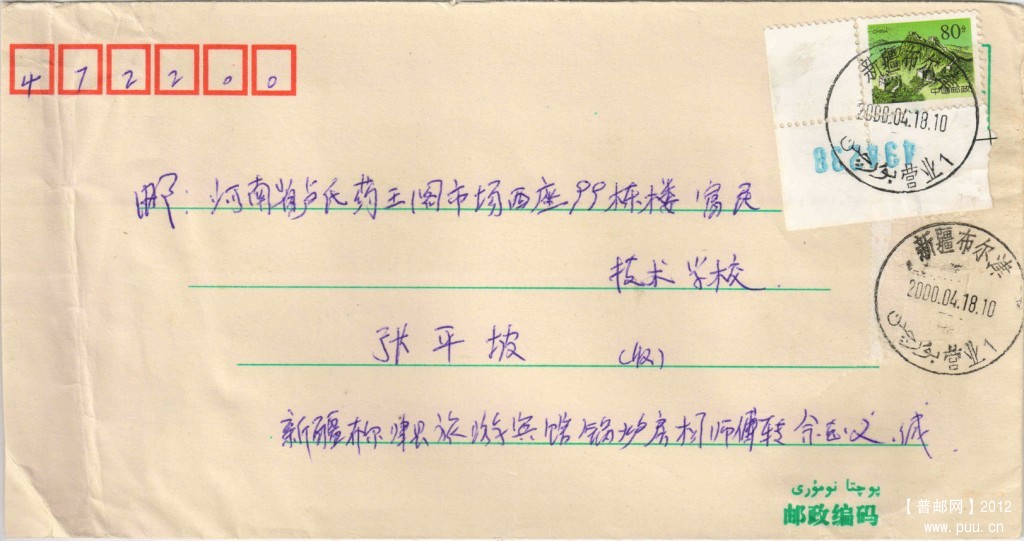 472200
CHINA
80分
中国邮政
新疆布尔津
2000.04.18.10
营业1
邮:河南省卢氏药王阁市场西座99栋楼富民
技术学校
新疆布尔津
2000.04.18.10
营业1
张平坡 (收)
新疆布尔津县旅游宾馆锅炉房 师傅转
پوچتا نومۇرى
邮政编码
【普邮网】2012
www.puu.cn